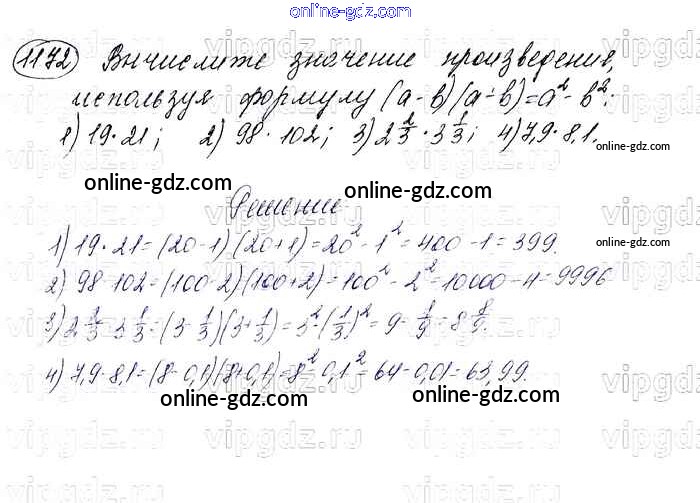 online-gdz.com
1172 Вычислите значение произведения,
используя формулу (a-b)(a+b)=a²-b²:
1) 19·21; 2) 98·102; 3) 2 2/3·3 1/3; 4) 7,9·8,1.
online-gdz.com
online-gdz.com online-gdz.com
Решение
1) 19·21=(20-1)(20+1)=20²-1²=400-1=399.
online-gdz.com
2) 98·102=(100-2)(100+2)=100²-2²=10000-4=9996
3) 2 2/3·3 1/3=(3-1/3)(3+1/3)=3²-(1/3)²=9-1/9=8 8/9.
4) 7,9·8,1=(8-0,1)(8+0,1)=8²-0,1²=64-0,01=63,99.
online-gdz.com online-gdz.com
vipgdz.ru vipgdz.ru vipgdz.ru